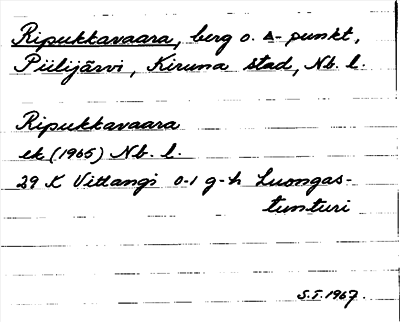 Ripukkavaara, berg o. Δ-punkt,
Piilijärvi, Kiruna stad, Nb. l.
Ripukkavaara
ek (1965) Nb. l.
29 K Vittangi 0-1 g-h Luongas-
tunturi
S.T. 1967.